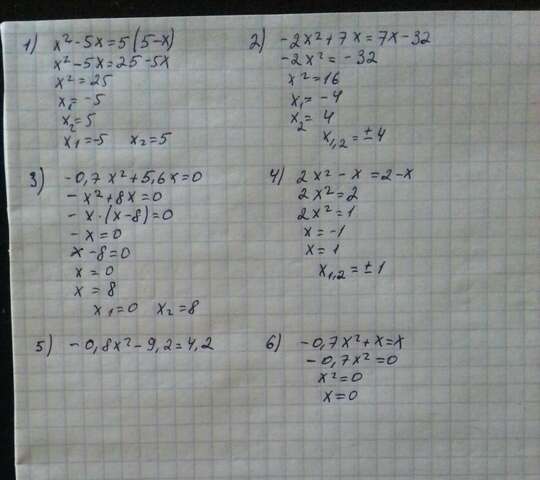 1) x² - 5x = 5(5-x)
x² - 5x = 25 - 5x
x² = 25
x₁ = -5
x₂ = 5
x₁ = -5 x₂ = 5
2) -2x² + 7x = 7x - 32
-2x² = -32
x² = 16
x₁ = -4
x₂ = 4
x₁,₂ = ±4
3) -0,7x² + 5,6x = 0
-x² + 8x = 0
-x·(x-8) = 0
-x = 0
x - 8 = 0
x = 0
x = 8
x₁ = 0 x₂ = 8
4) 2x² - x = 2 - x
2x² = 2
2x² = 1
x = -1
x = 1
x₁,₂ = ±1
5) -0,8x² - 9,2 = 4,2
6) -0,7x² + x = x
-0,7x² = 0
x² = 0
x = 0